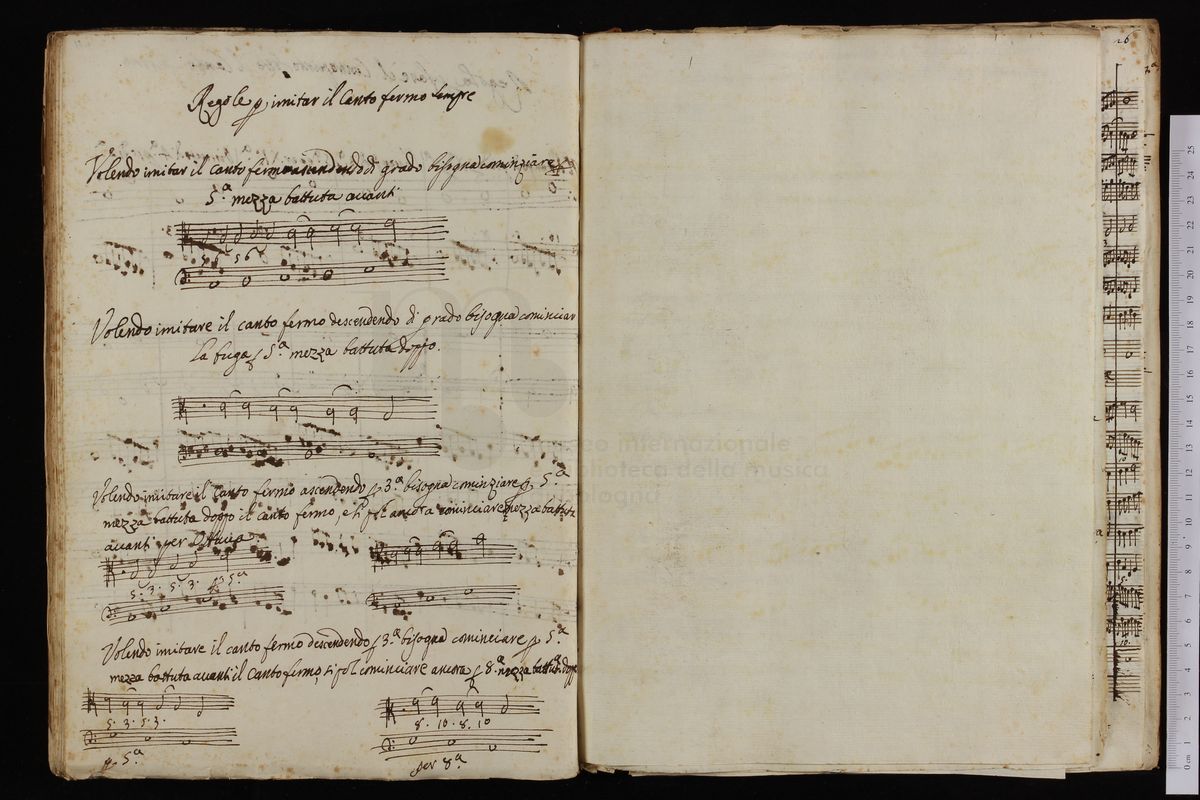 Regole p imitar il Canto fermo sempre
Volendo imitar il canto fermo ascendendo di grado bisogna cominziare
5.ª mezza battuta avanti
56 56
Volendo imitare il canto fermo descendendo di grado bisogna cominciar
la fuga p 5.ª mezza battuta doppo.
Volendo imitare il Canto fermo ascendendo p 3.ª bisogna cominziare p 5.ª
mezza battuta doppo il canto fermo, e si pol ancora cominciare mezza battuta
avanti per Ottava
5. 3. 5. 3. p 5ª
Volendo imitare il canto fermo descendendo p 3.ª bisogna cominciare p 5.ª
mezza battuta avanti il Canto fermo, si pol cominciare ancora p 8.ª mezza battuta doppo
5. 3. 5. 3.
8. 10. 8. 10
p 5.ª
per 8.ª
museo internazionale
biblioteca della musica
bologna
26
0 cm 1 2 3 4 5 6 7 8 9 10 11 12 13 14 15 16 17 18 19 20 21 22 23 24 25